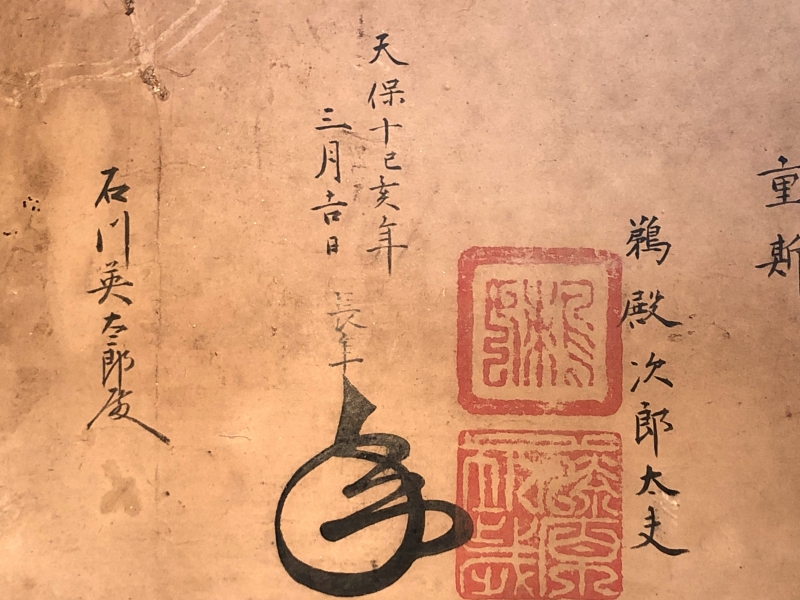 重斯
鵜殿次郎太夫
天保十己亥年
三月吉日
長年
石川英太郎殿